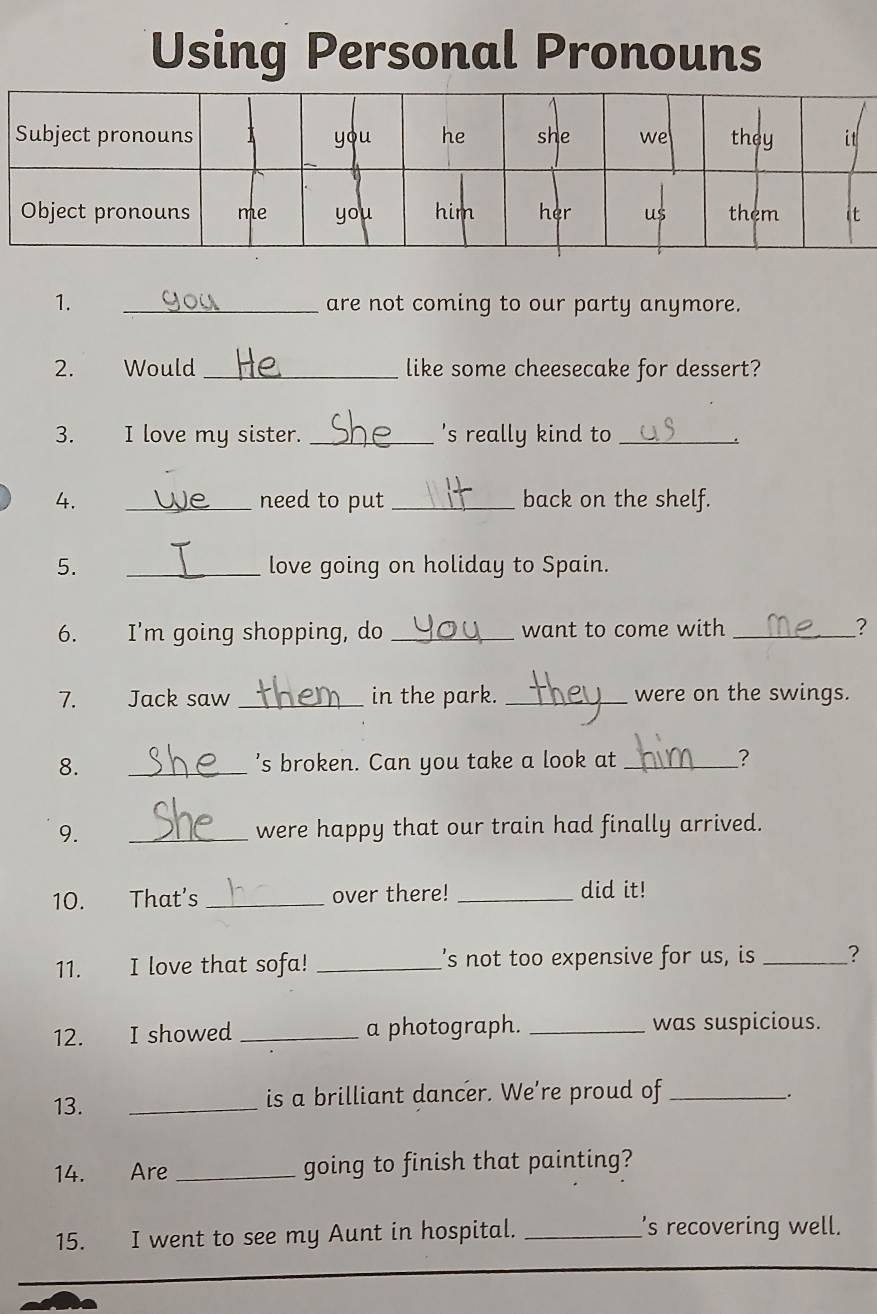 Using Personal Pronouns
Subject pronouns I you he she we they it
Object pronouns me you him her us them it
1. you are not coming to our party anymore.
2. Would He like some cheesecake for dessert?
3. I love my sister. She 's really kind to us.
4. we need to put it back on the shelf.
5. I love going on holiday to Spain.
6. I'm going shopping, do you want to come with me?
7. Jack saw them in the park. they were on the swings.
8. She 's broken. Can you take a look at him?
9. She were happy that our train had finally arrived.
10. That's h over there! ______ did it!
11. I love that sofa! ______'s not too expensive for us, is ______?
12. I showed ______ a photograph. ______ was suspicious.
13. ______ is a brilliant dancer. We're proud of ______.
14. Are ______ going to finish that painting?
15. I went to see my Aunt in hospital. ______'s recovering well.